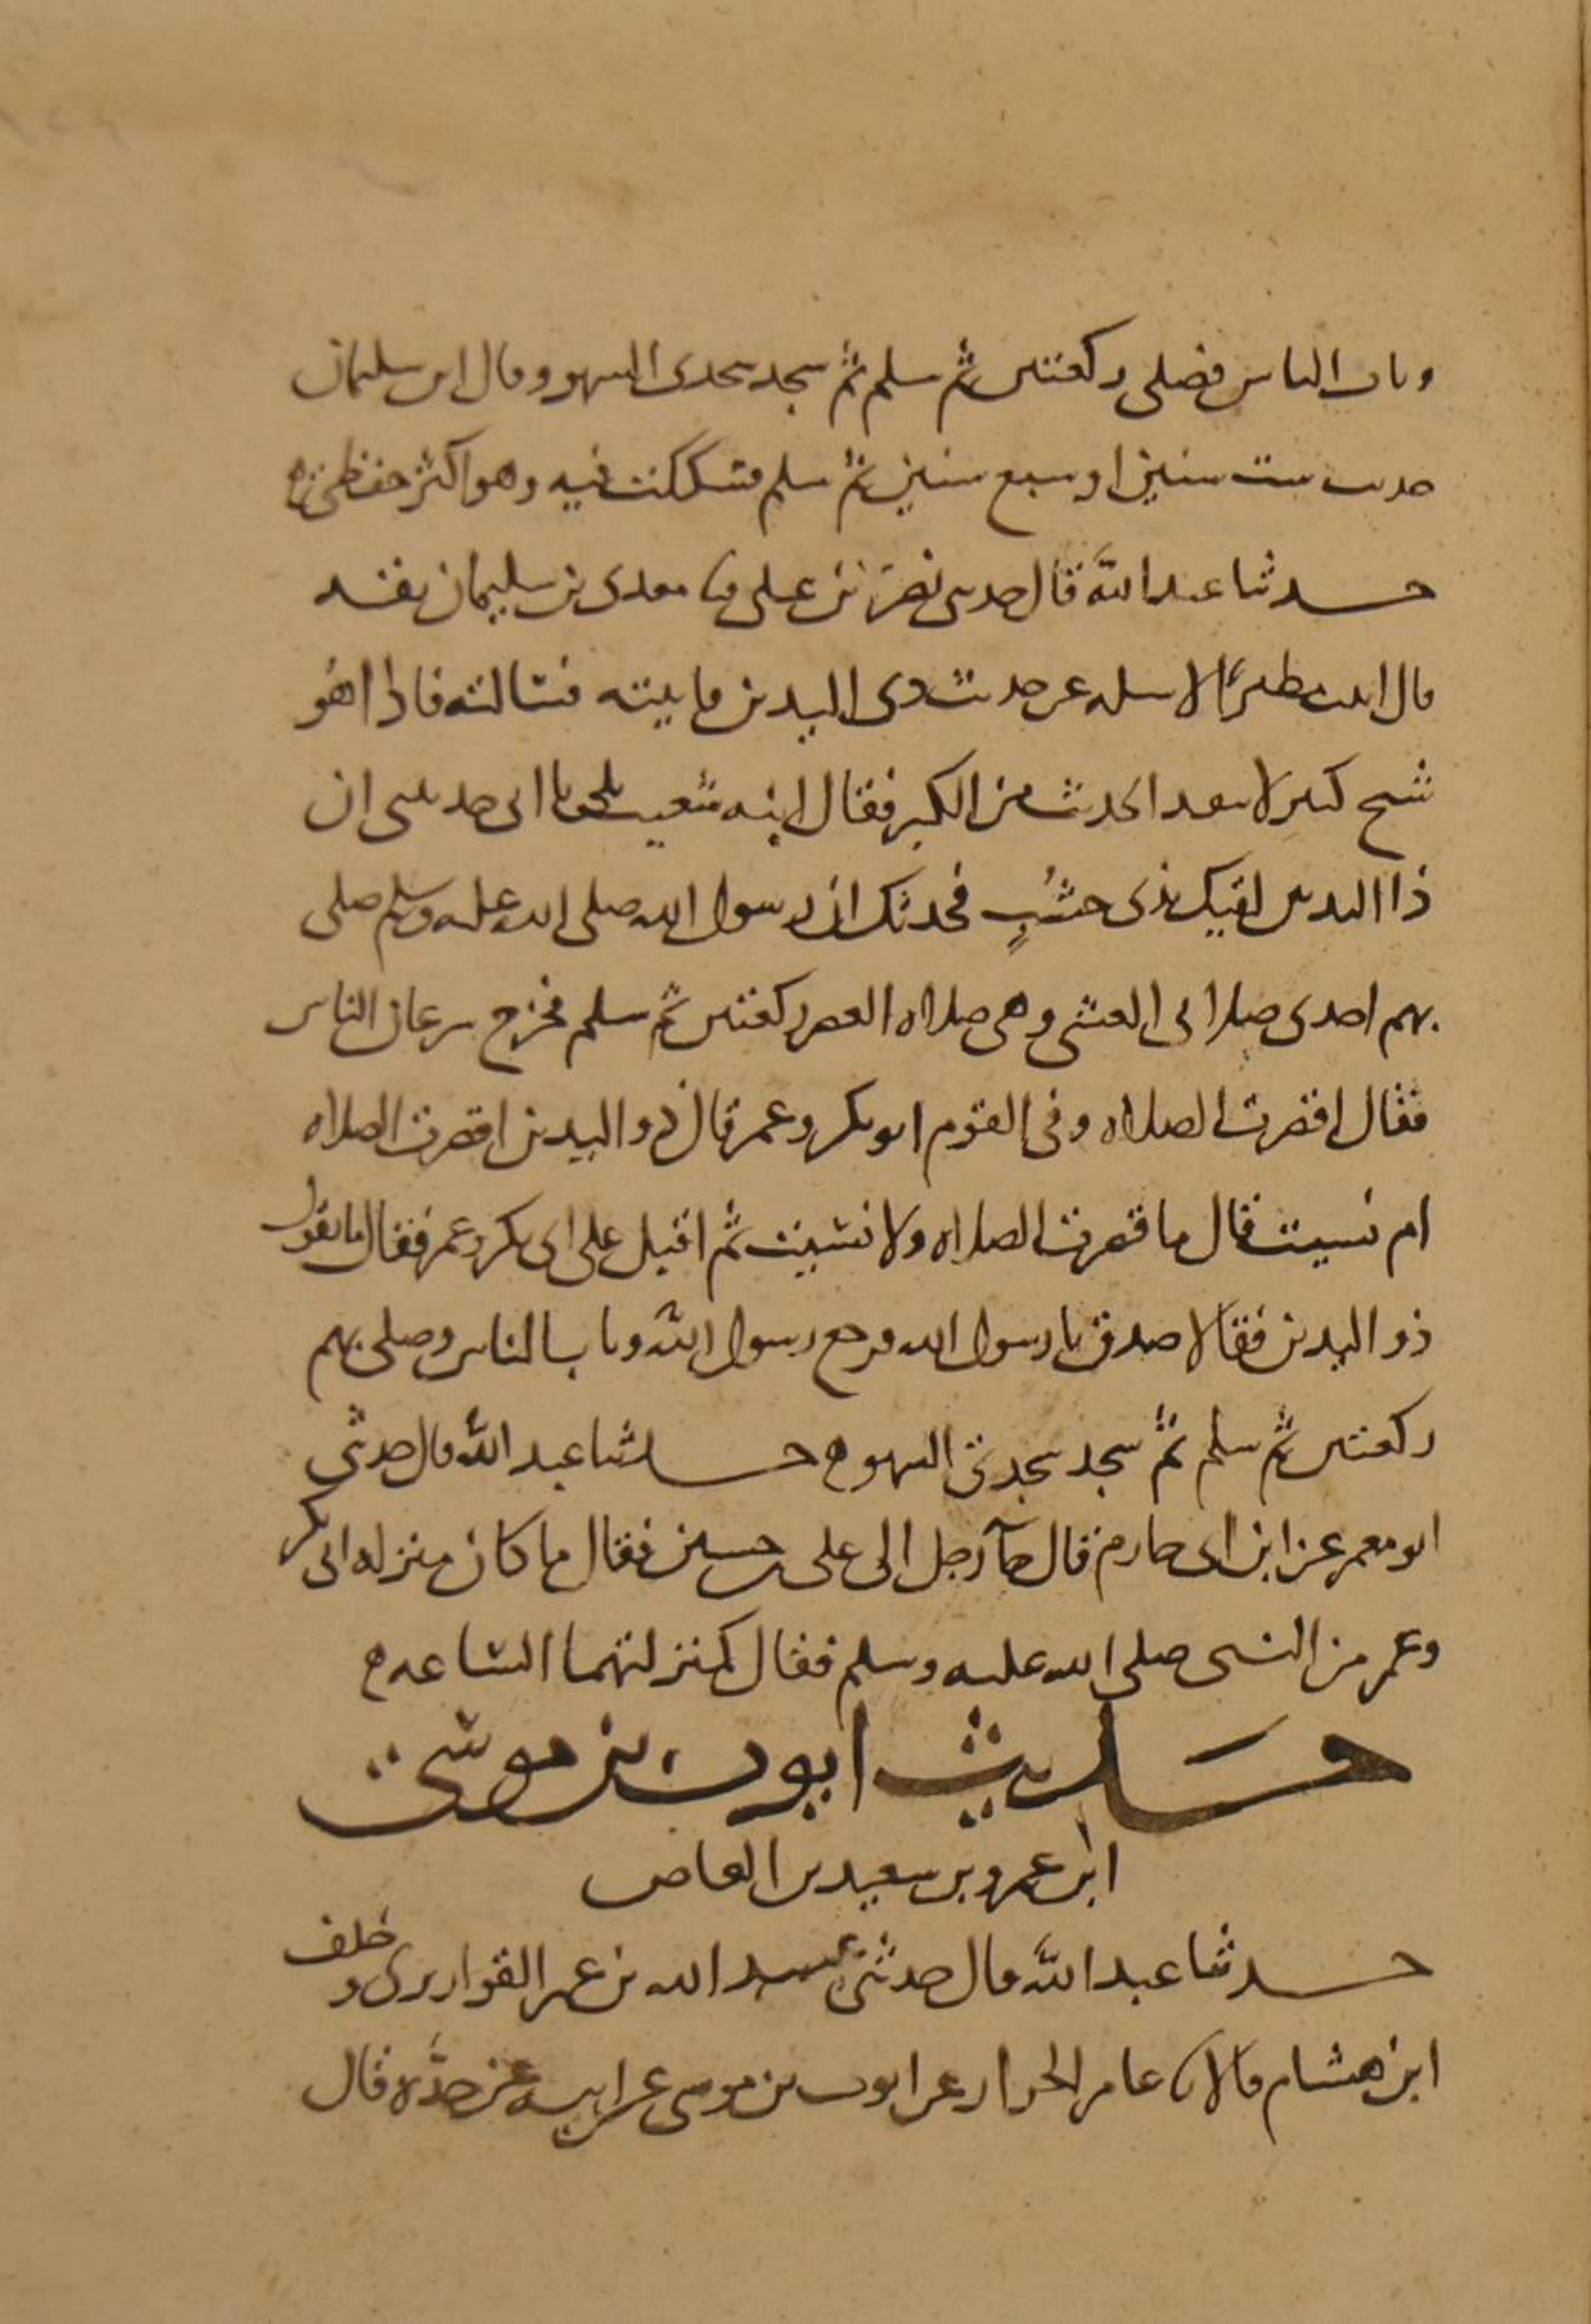 وثاب الناس فصلى ركعتين ثم سلم ثم سجد سجدتى السهو وقال ابو سليمان
حدثت ست سنين او سبع سنين ثم سلم فشككت فيه وهو اكثر حفظى
حدثنا عبد الله قال حدثنى نصر بن على ثنا معدى بن سليمان
قال اتيت مطيرا لاسله عن حديث ذى اليدين فاتيته فسالته فاذا هو
شيخ كبير لا ينفد الحديث من الكبر فقال ابنه شعيب بلى يا ابى حدثتنى ان
ذا اليدين لقيك بذى خشب فحدثك ان رسول الله صلى الله عليه وسلم صلى
بهم احدى صلاتى العشى وهى صلاه العصر ركعتين ثم سلم فخرج سرعان الناس
فقال اقصرت الصلاه وفى القوم ابو بكر وعمر قال ذو اليدين اقصرت الصلاه
ام نسيت قال ما قصرت الصلاه ولا نسيت ثم اقبل على ابى بكر وعمر فقال ما يقول
ذو اليدين فقالا صدق يا رسول الله فرجع رسول الله وثاب الناس وصلى بهم
ركعتين ثم سلم ثم سجد سجدتى السهو ه حدثنا عبد الله قال حدثنى
ابو معمر عن ابن ابى حازم قال جآ رجل الى على بن حسين فقال ما كان منزله ابى بكر
وعمر من النبى صلى الله عليه وسلم فقال كمنزلتهما الساعه ه
حديث ايوب بن موسى
ابن عمرو بن سعيد بن العاص
حدثنا عبد الله قال حدثنى عبيد الله بن عمر القواريرى وخلف
ابن هشام قالا ثنا عامر الخزاز عن ايوب بن موسى عن ابيه عن جده قال